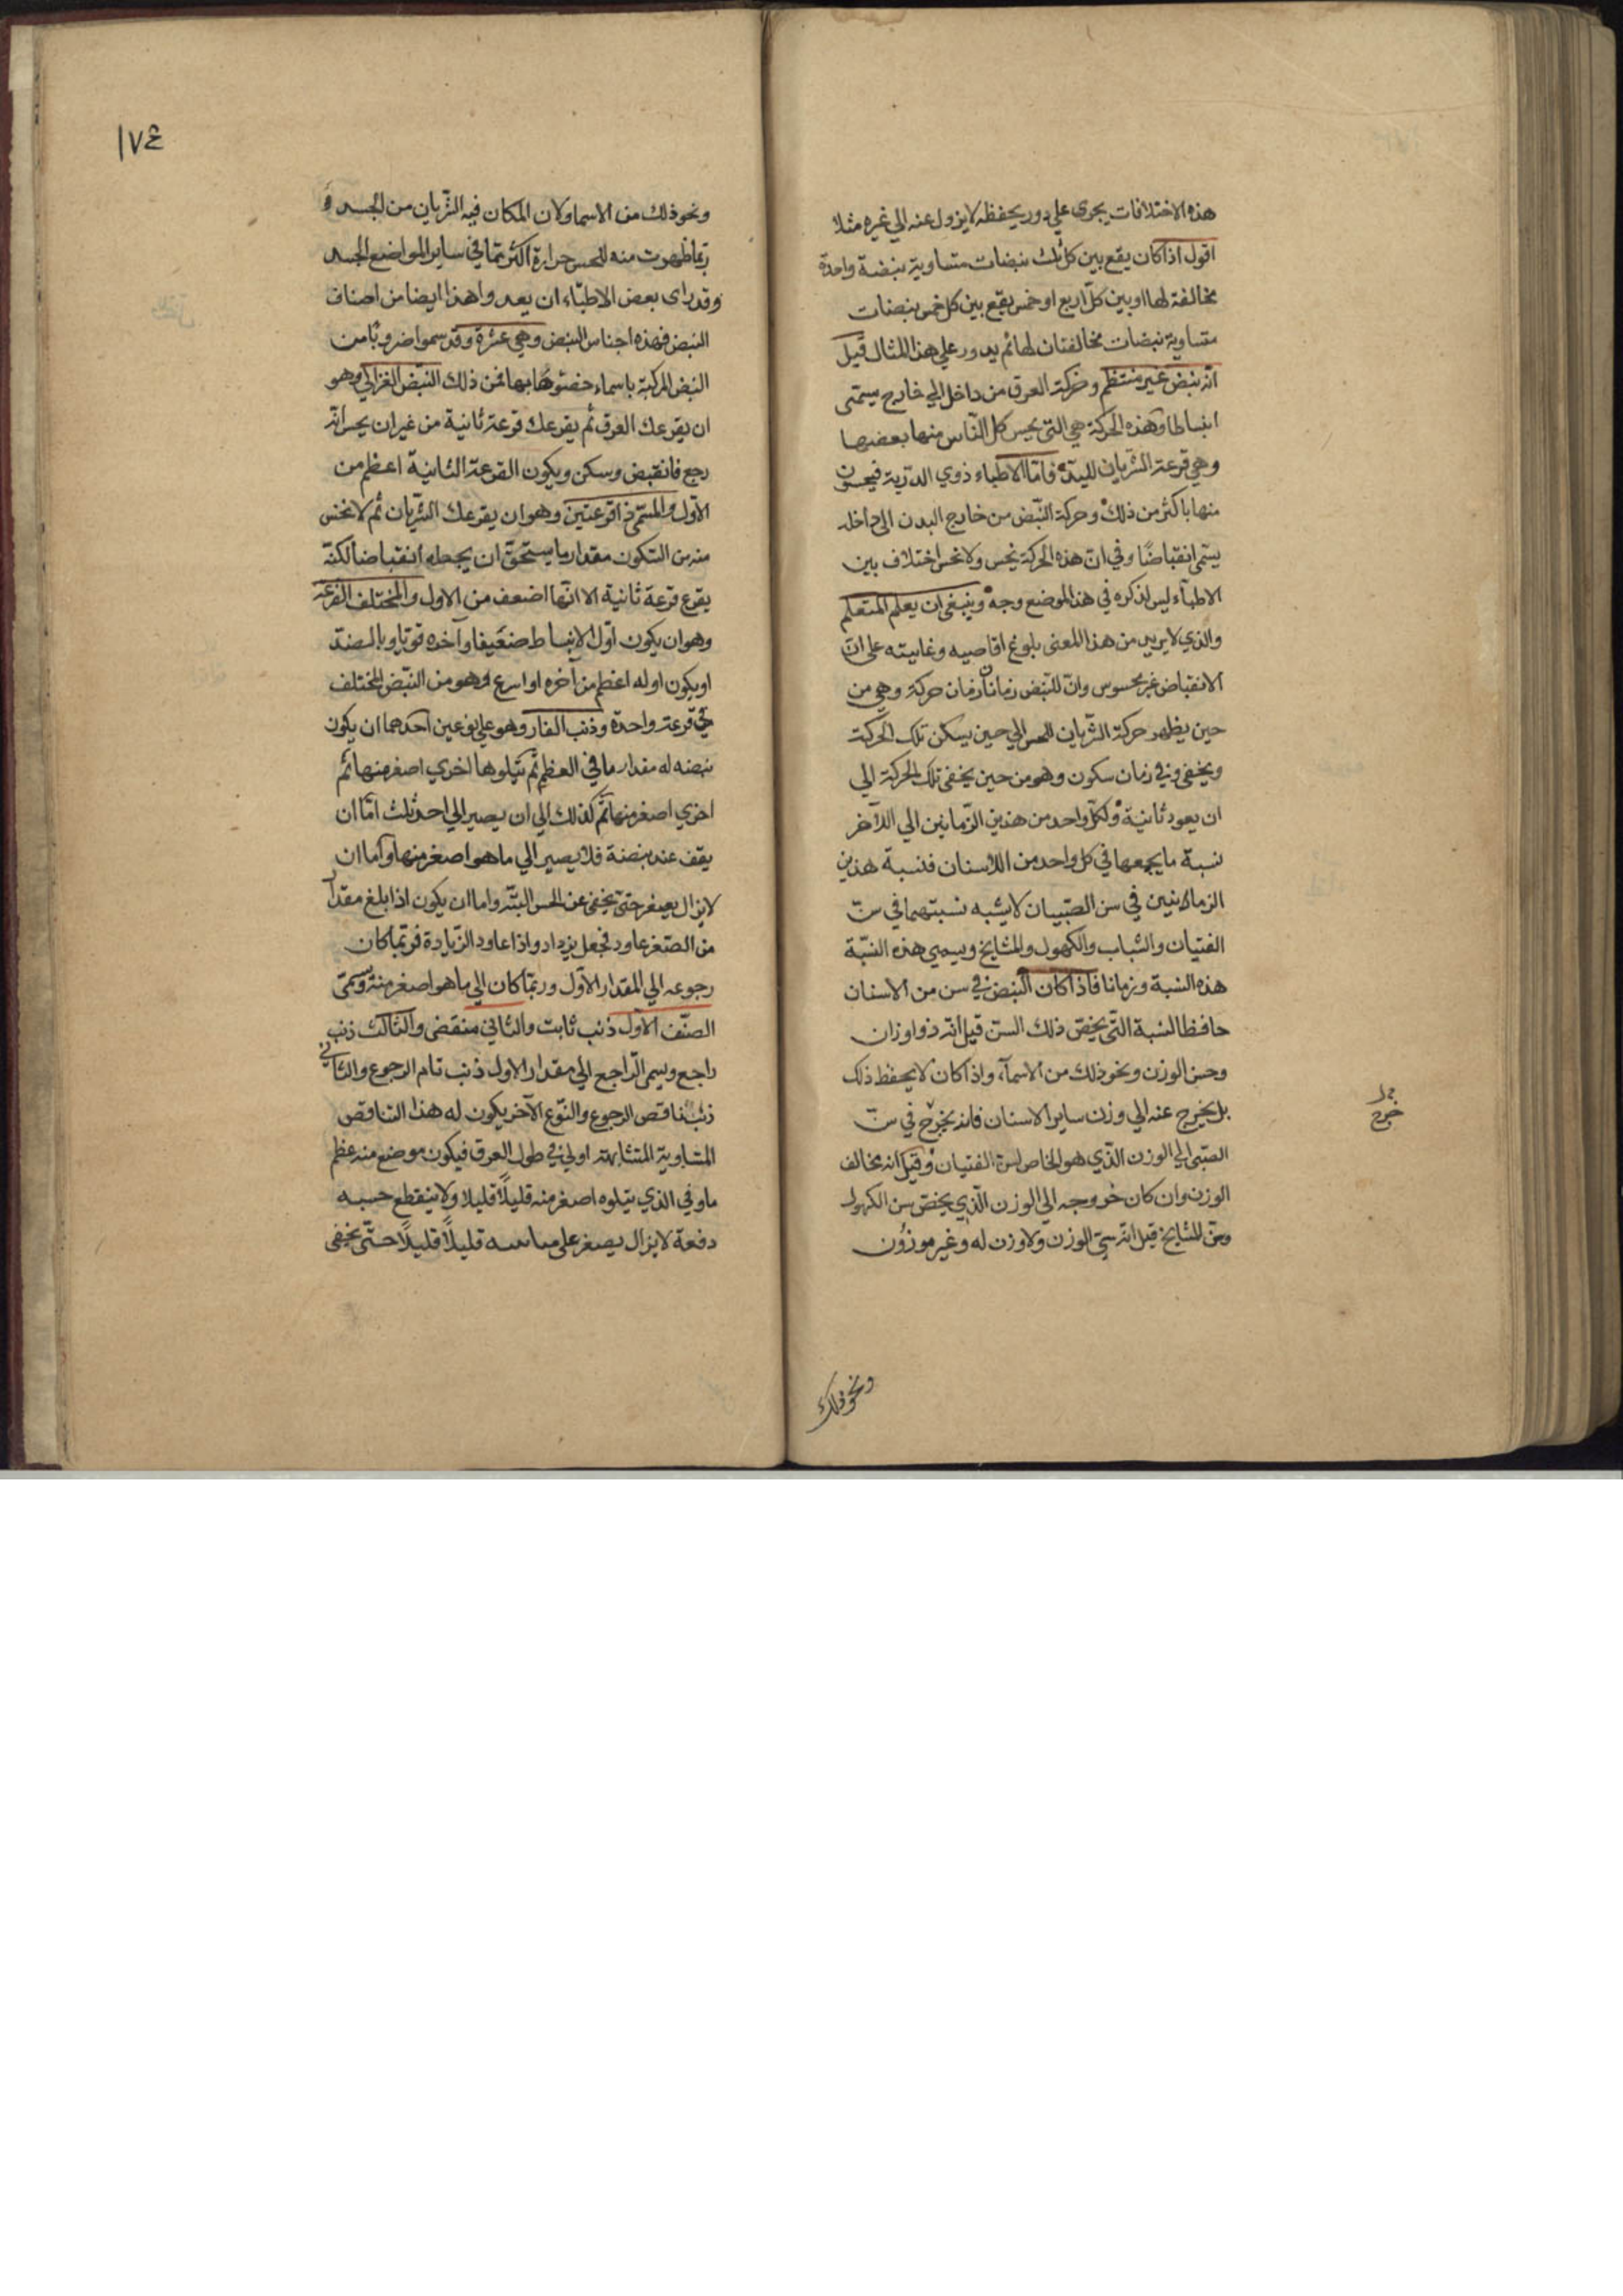 هذه الاختلافات يجرى علي دور يحفظه لا يزول عنه الي غيره مثلا
اقول اذا كان يقع بين كل ثلث نبضات متساوية نبضة واحدة
مخالفة لها او بين كل اربع او خمس يقع بين كل خمس نبضات
متساوية نبضات مخالفتان لها ثم يدور علي هذا المثال قيل
انه نبض غير منتظم وحركة العرق من داخل الي خارج يسمى
انبساطا وهذه الحركة هي التي يحس كل الناس منها بعضها
وهي قرعة الشريان لليد فاما الاطباء ذوي الدربة فيحسون
منها باكثر من ذلك وحركة النبض من خارج البدن الى داخله
يسمى انقباضا وفي ان هذه الحركة يحس ولا تحس اختلاف بين
الاطباء ليس لذكره في هذا الموضع وجه وينبغي ان يعلم المتعلم
والذي لا يريد من هذا المعنى بلوغ اقاصيه وغايته على ان
الانقباض غير محسوس وان للنبض زمانان زمان حركة وهي من
حين يظهر حركة الشريان للحس الي حين يسكن تلك الحركة
ويخفى وفي زمان سكون وهو من حين يخفى تلك الحركة الي
ان يعود ثانية ولكل واحد من هذين الزمانين الي الآخر
نسبة ما يجمعها في كل واحد من الاسنان فنسبة هذين
الزمانين في سن الصبيان لا يشبه نسبتهما في سن
الفتيان والشباب والكهول والمشايخ ويسمي هذه النسبة
هذه النسبة وزمانا فاذا كان النبض في سن من الاسنان
حافظا لنسبة التي يخص ذلك السن قيل انه ذو اوزان
وحسن الوزن ونحو ذلك من الاسمآء واذا كان لا يحفظ ذلك
بل يخرج عنه الي وزن ساير الاسنان فانه يخرج في سن
الصبى الي الوزن الذي هو الخاص لسن الفتيان وقيل انه مخالف
الوزن وان كان خروجه الي الوزن الذي يخص سن الكهول
وسن المشايخ قيل انه سيئ الوزن ولا وزن له وغير موزون
خرج
ونحو ذلك
١٧٤
ونحو ذلك من الاسما ولان المكان فيه الشريان من الجسد
ربما ظهرت منه للحس حرارة اكثر مما في ساير المواضع الجسد
وقد راى بعض الاطباء ان يعدوا هذا ايضا من اصناف
النبض فهذه اجناس النبض وهي عشرة وقد سموا ضروبا من
النبض المركبة باسماء خصوها بها فمن ذلك النبض الغزالي وهو
ان يقرعك العرق ثم يقرعك قرعة ثانية من غير ان يحس انه
رجع فانقبض وسكن ويكون القرعة الثانية اعظم من
الاول والمسمى ذا قرعتين وهو ان يقرعك الشريان ثم لا تحس
منه من السكون مقدار ما يستحق ان يجعله انقباضا لكنه
يقرع قرعة ثانية الا انها اضعف من الاول والمختلف القرعة
وهو ان يكون اول الانبساط ضعيفا وآخره قويا وبالضد
او يكون اوله اعظم من آخره او اسرع وهو من النبض المختلف
في قرعة واحدة وذنب الفار وهو علي نوعين احدهما ان يكون
نبضه له مقدار ما في العظم ثم يتلوها اخري اصغر منها ثم
اخري اصغر منها ثم كذلك الي ان يصير الي احد ثلث اما ان
يقف عند نبضة فلا يصير الي ما هو اصغر منها واما ان
لا يزال يصغر حتى يخفى عن الحس البتة واما ان يكون اذا بلغ مقدار
من الصغر عاود فجعل يزداد واذا عاود الزيادة فربما كان
رجوعه الي المقدار الاول وربما كان الي ما هو اصغر منه ويسمى
الصنف الاول ذنب ثابت والثاني منقضى والثالث ذنب
راجع ويسمى الراجع الي مقدار الاول ذنب تام الرجوع والثاني
ذنب ناقص الرجوع والنوع الآخر يكون له هذا التناقص
المتساوية المتشابهة اولي في طول العرق فيكون موضع منه عظم
ما وفي الذي يتلوه اصغر منه قليلا قليلا ولا ينقطع حسه
دفعة لا يزال يصغر على قليلا قليلا حتى يخفى